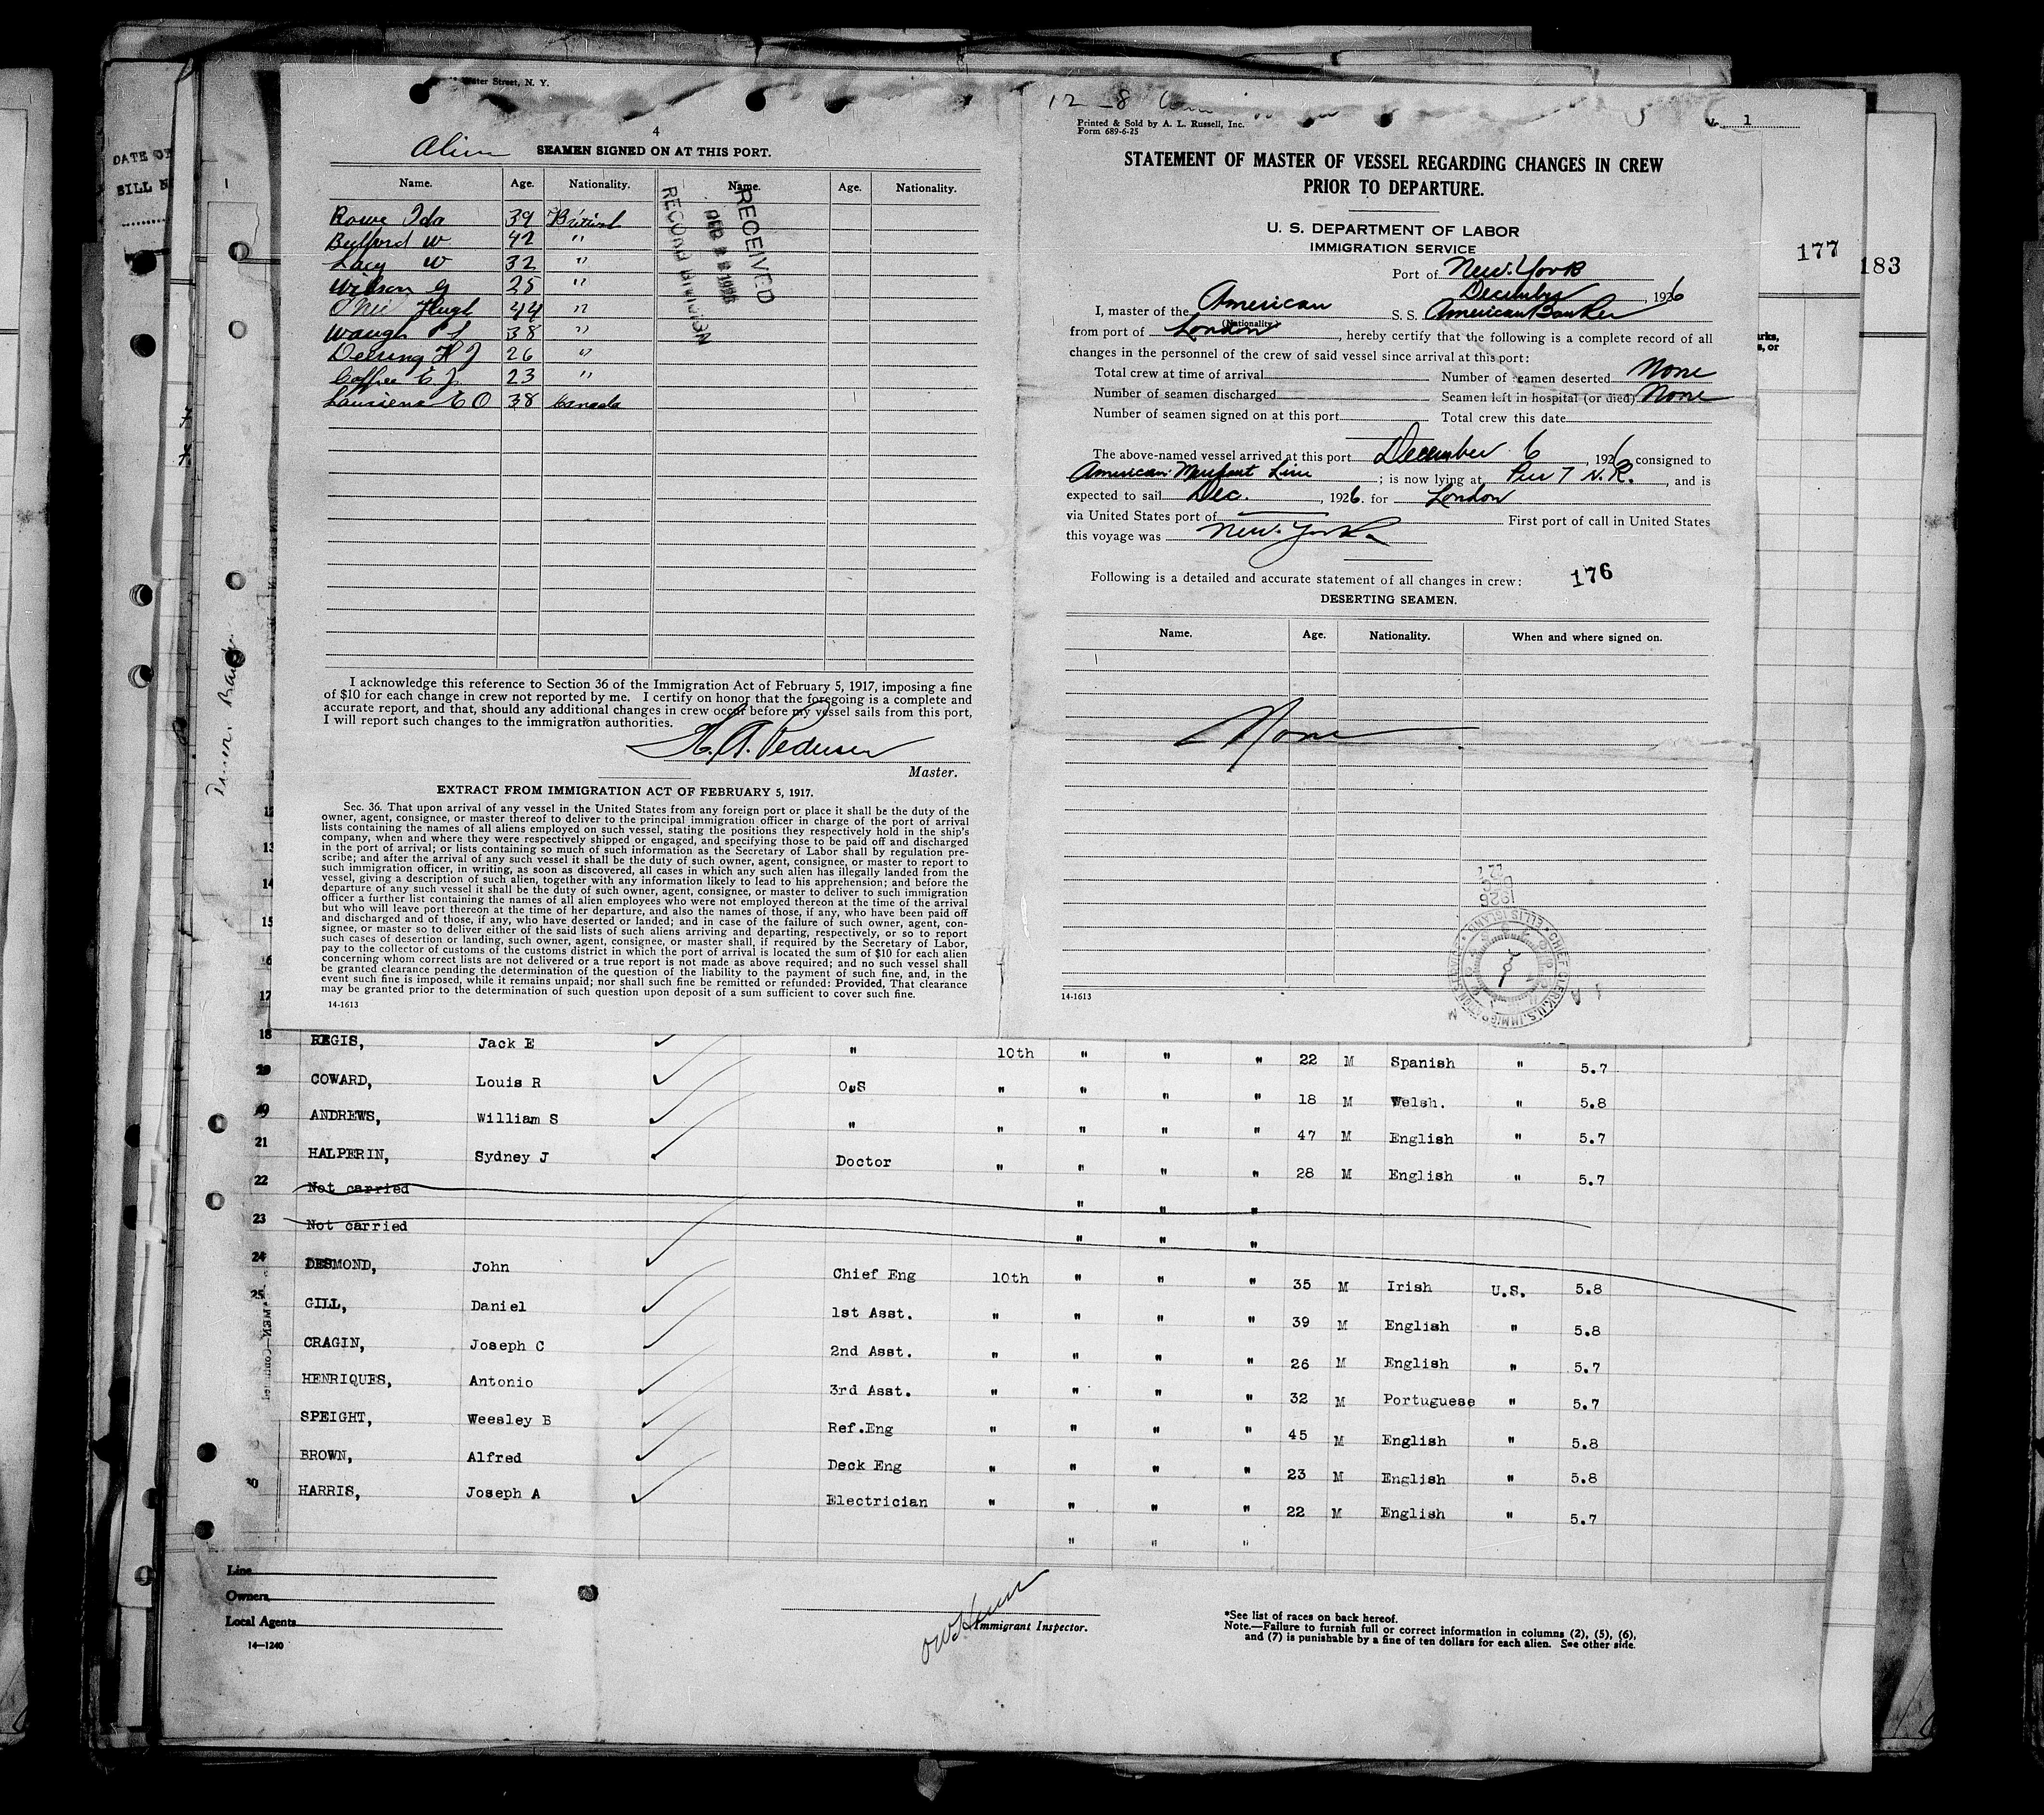 Water Street, N. Y.
4
Alien SEAMEN SIGNED ON AT THIS PORT.
Name. Age. Nationality. Name. Age. Nationality.
Rowe Ida 39 British
Bulford W 42 "
Lacy W 32 "
Wilson G 25 "
Hugh 44 "
Waugh 38 "
Deering H J 26 "
Coffee E. J. 23 "
E O 38 Canada
RECEIVED
RECORD DIVISION
I acknowledge this reference to Section 36 of the Immigration Act of February 5, 1917, imposing a fine
of $10 for each change in crew not reported by me. I certify on honor that the foregoing is a complete and
accurate report, and that, should any additional changes in crew occur before my vessel sails from this port,
I will report such changes to the immigration authorities.
H. A. Pedersen
Master.
EXTRACT FROM IMMIGRATION ACT OF FEBRUARY 5, 1917.
Sec. 36. That upon arrival of any vessel in the United States from any foreign port or place it shall be the duty of the
owner, agent, consignee, or master thereof to deliver to the principal immigration officer in charge of the port of arrival
lists containing the names of all aliens employed on such vessel, stating the positions they respectively hold in the ship's
company, when and where they were respectively shipped or engaged, and specifying those to be paid off and discharged
in the port of arrival; or lists containing so much of such information as the Secretary of Labor shall by regulation pre-
scribe; and after the arrival of any such vessel it shall be the duty of such owner, agent, consignee, or master to report to
such immigration officer, in writing, as soon as discovered, all cases in which any such alien has illegally landed from the
vessel, giving a description of such alien, together with any information likely to lead to his apprehension; and before the
departure of any such vessel it shall be the duty of such owner, agent, consignee, or master to deliver to such immigration
officer a further list containing the names of all alien employees who were not employed thereon at the time of the arrival
but who will leave port thereon at the time of her departure, and also the names of those, if any, who have been paid off
and discharged and of those, if any, who have deserted or landed; and in case of the failure of such owner, agent, con-
signee, or master so to deliver either of the said lists of such aliens arriving and departing, respectively, or so to report
such cases of desertion or landing, such owner, agent, consignee, or master shall, if required by the Secretary of Labor,
pay to the collector of customs of the customs district in which the port of arrival is located the sum of $10 for each alien
concerning whom correct lists are not delivered or a true report is not made as above required; and no such vessel shall
be granted clearance pending the determination of the question of the liability to the payment of such fine, and, in the
event such fine is imposed, while it remains unpaid; nor shall such fine be remitted or refunded: Provided, That clearance
may be granted prior to the determination of such question upon deposit of a sum sufficient to cover such fine.
14-1613
12-8
Printed & Sold by A. L. Russell, Inc.
Form 689-6-25
1
STATEMENT OF MASTER OF VESSEL REGARDING CHANGES IN CREW
PRIOR TO DEPARTURE.
U. S. DEPARTMENT OF LABOR
IMMIGRATION SERVICE
Port of New York
December , 1926
I, master of the American S. S. American Banker
(Nationality)
from port of London, hereby certify that the following is a complete record of all
changes in the personnel of the crew of said vessel since arrival at this port:
Total crew at time of arrival Number of seamen deserted None
Number of seamen discharged Seamen left in hospital (or died) None
Number of seamen signed on at this port Total crew this date
The above-named vessel arrived at this port December 6, 1926 consigned to
American Merchant Line; is now lying at Pier 7 N.R., and is
expected to sail Dec., 1926. for London
via United States port of First port of call in United States
this voyage was New York
Following is a detailed and accurate statement of all changes in crew: 176
DESERTING SEAMEN.
Name. Age. Nationality. When and where signed on.
None
DEC 22 1926
CHIEF CLERK, U.S. IMMIGRATION SERVICE ELLIS ISLAND
14-1613
DATE OF
BILL
177
183
rks,
s, or
12
13
14
15
16
17
18 REGIS, Jack E " 10th " " " 22 M Spanish " 5.7
20 COWARD, Louis R O.S " " " " 18 M Welsh. " 5.8
19 ANDREWS, William S " " " " " 47 M English " 5.7
21 HALPERIN, Sydney J Doctor " " " " 28 M English " 5.7
22 Not carried " " "
23 Not carried " " "
24 DESMOND, John Chief Eng 10th " " " 35 M Irish U.S. 5.8
25 GILL, Daniel 1st Asst. " " " " 39 M English " 5.8
CRAGIN, Joseph C 2nd Asst. " " " " 26 M English " 5.7
HENRIQUES, Antonio 3rd Asst. " " " " 32 M Portuguese " 5.7
SPEIGHT, Weesley B Ref.Eng " " " " 45 M English " 5.8
BROWN, Alfred Deck Eng " " " " 23 M English " 5.8
HARRIS, Joseph A Electrician " " " " 22 M English " 5.7
" " "
Line
Owners
Local Agents
14—1240
Immigrant Inspector.
*See list of races on back hereof.
Note.—Failure to furnish full or correct information in columns (2), (5), (6),
and (7) is punishable by a fine of ten dollars for each alien. See other side.